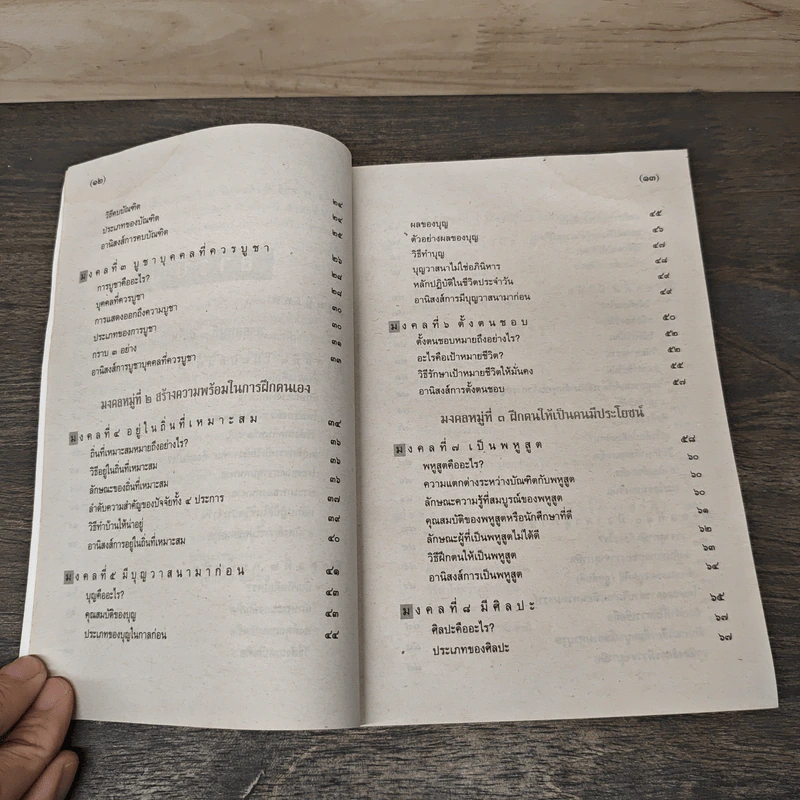 (๑๒)
วิธีคบบัณฑิต ๒๔
ประเภทของบัณฑิต ๒๔
อานิสงส์การคบบัณฑิต ๒๕
มงคลที่ ๓ บูชาบุคคลที่ควรบูชา ๒๖
การบูชาคืออะไร? ๒๘
บุคคลที่ควรบูชา ๒๘
การแสดงออกถึงความบูชา ๓๐
ประเภทของการบูชา ๓๐
กราบ ๓ อย่าง ๓๑
อานิสงส์การบูชาบุคคลที่ควรบูชา ๓๓
มงคลหมู่ที่ ๒ สร้างความพร้อมในการฝึกตนเอง
มงคลที่ ๔ อยู่ในถิ่นที่เหมาะสม ๓๔
ถิ่นที่เหมาะสมหมายถึงอย่างไร? ๓๖
วิธีอยู่ในถิ่นที่เหมาะสม ๓๖
ลักษณะของถิ่นที่เหมาะสม ๓๖
ลำดับความสำคัญของปัจจัยทั้ง ๔ ประการ ๓๗
วิธีทำบ้านให้น่าอยู่ ๓๙
อานิสงส์การอยู่ในถิ่นที่เหมาะสม ๔๐
มงคลที่ ๕ มีบุญวาสนามาก่อน ๔๑
บุญคืออะไร? ๔๓
คุณสมบัติของบุญ ๔๓
ประเภทของบุญในกาลก่อน ๔๔
(๑๓)
ผลของบุญ ๔๕
ตัวอย่างผลของบุญ ๔๖
วิธีทำบุญ ๔๗
บุญวาสนาไม่ใช่อภินิหาร ๔๘
หลักปฏิบัติในชีวิตประจำวัน ๔๙
อานิสงส์การมีบุญวาสนามาก่อน ๔๙
มงคลที่ ๖ ตั้งตนชอบ ๕๐
ตั้งตนชอบหมายถึงอย่างไร? ๕๒
อะไรคือเป้าหมายชีวิต? ๕๒
วิธีรักษาเป้าหมายชีวิตให้มั่นคง ๕๕
อานิสงส์การตั้งตนชอบ ๕๗
มงคลหมู่ที่ ๓ ฝึกตนให้เป็นคนมีประโยชน์
มงคลที่ ๗ เป็นพหูสูต ๕๘
พหูสูตคืออะไร? ๖๐
ความแตกต่างระหว่างบัณฑิตกับพหูสูต ๖๐
ลักษณะความรู้ที่สมบูรณ์ของพหูสูต ๖๐
คุณสมบัติของพหูสูตหรือนักศึกษาที่ดี ๖๑
ลักษณะผู้ที่เป็นพหูสูตไม่ได้ดี ๖๒
วิธีฝึกตนให้เป็นพหูสูต ๖๓
อานิสงส์การเป็นพหูสูต ๖๔
มงคลที่ ๘ มีศิลปะ ๖๕
ศิลปะคืออะไร? ๖๗
ประเภทของศิลปะ ๖๗